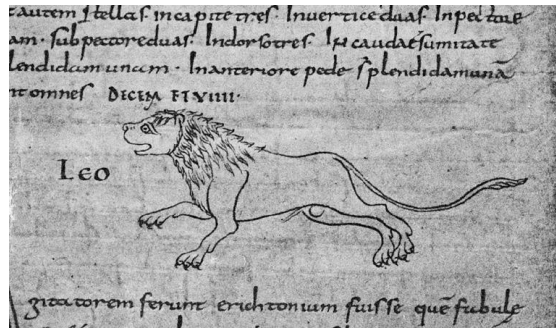 autem stellas incapite tres. Inuertice duas. Inpectore
am. sub pectore duas. Indorso tres. In caudae sumitate
lendidam unam. Inanteriore pede splendidamunā
nt omnes DECEM ET VIIII.
Leo
gitatorem ferunt erichtonium fuisse quē fabule